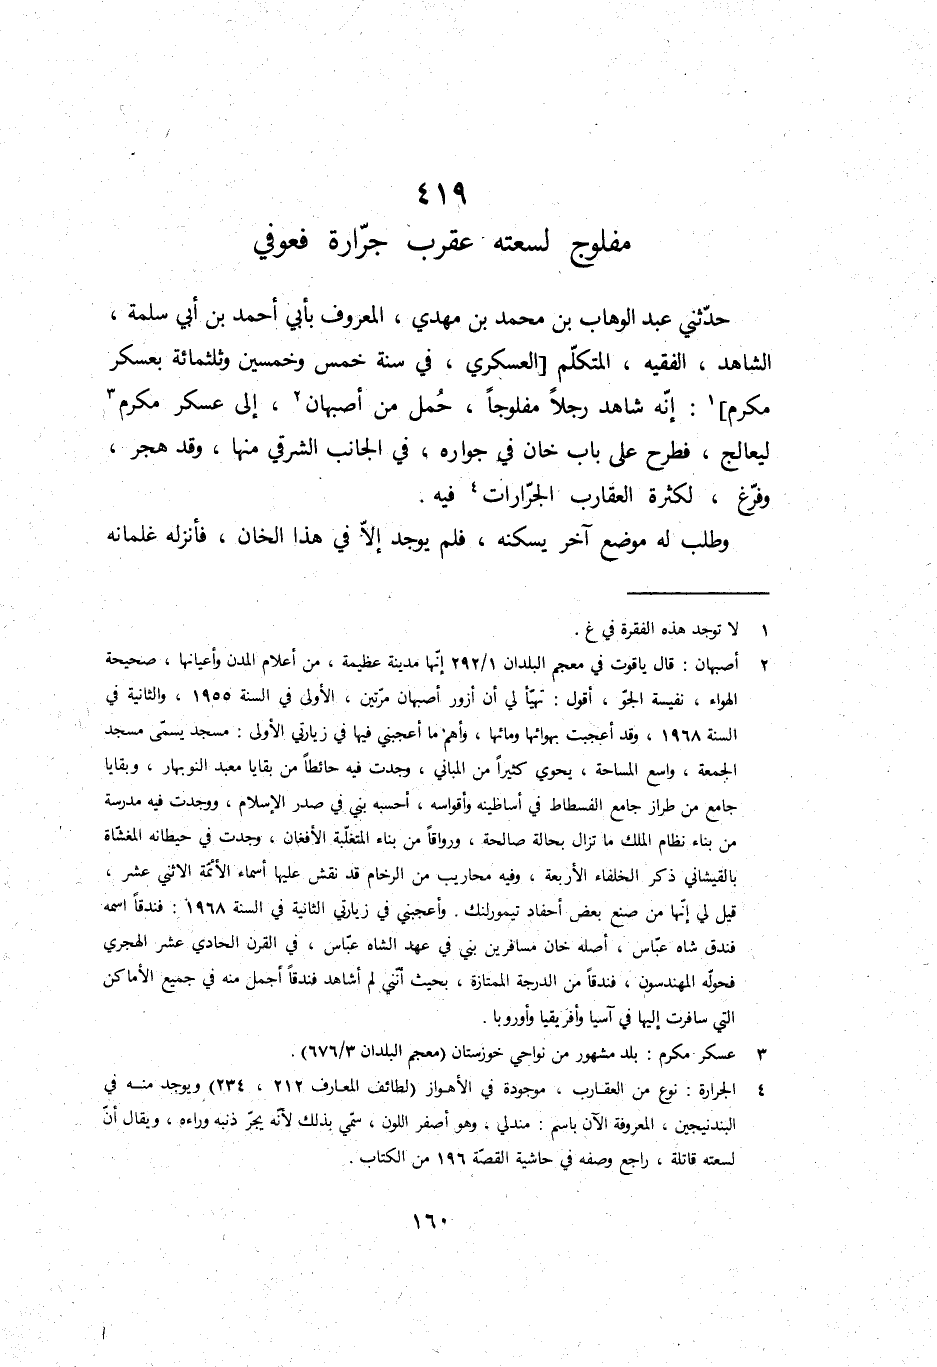 ٤١٩
مفلوج لسعته عقرب جرّارة فعوفي
حدّثني عبد الوهاب بن محمد بن مهدي ، المعروف بأبي أحمد بن أبي سلمة ،
الشاهد ، الفقيه ، المتكلّم [العسكري ، في سنة خمس وخمسين وثلثمائة بعسكر
مكرم]١ : إنّه شاهد رجلاً مفلوجاً ، حُمل من أصبهان٢ ، إلى عسكر مكرم٣
ليعالج ، فطرح على باب خان في جواره ، في الجانب الشرقي منها ، وقد هجر ،
وفرّغ ، لكثرة العقارب الجرّارات٤ فيه .
وطلب له موضع آخر يسكنه ، فلم يوجد إلاّ في هذا الخان ، فأنزله غلمانه
١ لا توجد هذه الفقرة في غ .
٢ أصبهان : قال ياقوت في معجم البلدان ٢٩٢/١ إنّها مدينة عظيمة ، من أعلام المدن وأعيانها ، صحيحة
الهواء ، نفيسة الجوّ ، أقول : تهيّأ لي أن أزور أصبهان مرّتين ، الأولى في السنة ١٩٥٥ ، والثانية في
السنة ١٩٦٨ ، وقد أعجبت بهوائها ومائها ، وأهم ما أعجبني فيها في زيارتي الأولى : مسجد يسمّى مسجد
الجمعة ، واسع المساحة ، يحوي كثيراً من المباني ، وجدت فيه حائطاً من بقايا معبد النوبهار ، وبقايا
جامع من طراز جامع الفسطاط في أساطينه وأقواسه ، أحسبه بني في صدر الإسلام ، ووجدت فيه مدرسة
من بناء نظام الملك ما تزال بحالة صالحة ، ورواقاً من بناء المتغلّبة الأفغان ، وجدت في حيطانه المغشّاة
بالقيشاني ذكر الخلفاء الأربعة ، وفيه محاريب من الرخام قد نقش عليها أسماء الأئمّة الاثني عشر ،
قيل لي إنّها من صنع بعض أحفاد تيمورلنك . وأعجبني في زيارتي الثانية في السنة ١٩٦٨ : فندقاً اسمه
فندق شاه عبّاس ، أصله خان مسافرين بني في عهد الشاه عبّاس ، في القرن الحادي عشر الهجري
فحولّه المهندسون ، فندقاً من الدرجة الممتازة ، بحيث أنّني لم أشاهد فندقاً أجمل منه في جميع الأماكن
التي سافرت إليها في آسيا وأفريقيا وأوروبا .
٣ عسكر مكرم : بلد مشهور من نواحي خوزستان (معجم البلدان ٦٧٦/٣) .
٤ الجرارة : نوع من العقارب ، موجودة في الأهواز (لطائف المعارف ٢١٢ ، ٢٣٤) ويوجد منه في
البندنيجين ، المعروفة الآن باسم : مندلي ، وهو أصفر اللون ، سمّي بذلك لأنّه يجرّ ذنبه وراءه ، ويقال أنّ
لسعته قاتلة ، راجع وصفه في حاشية القصّة ١٩٦ من الكتاب .
١٦٠